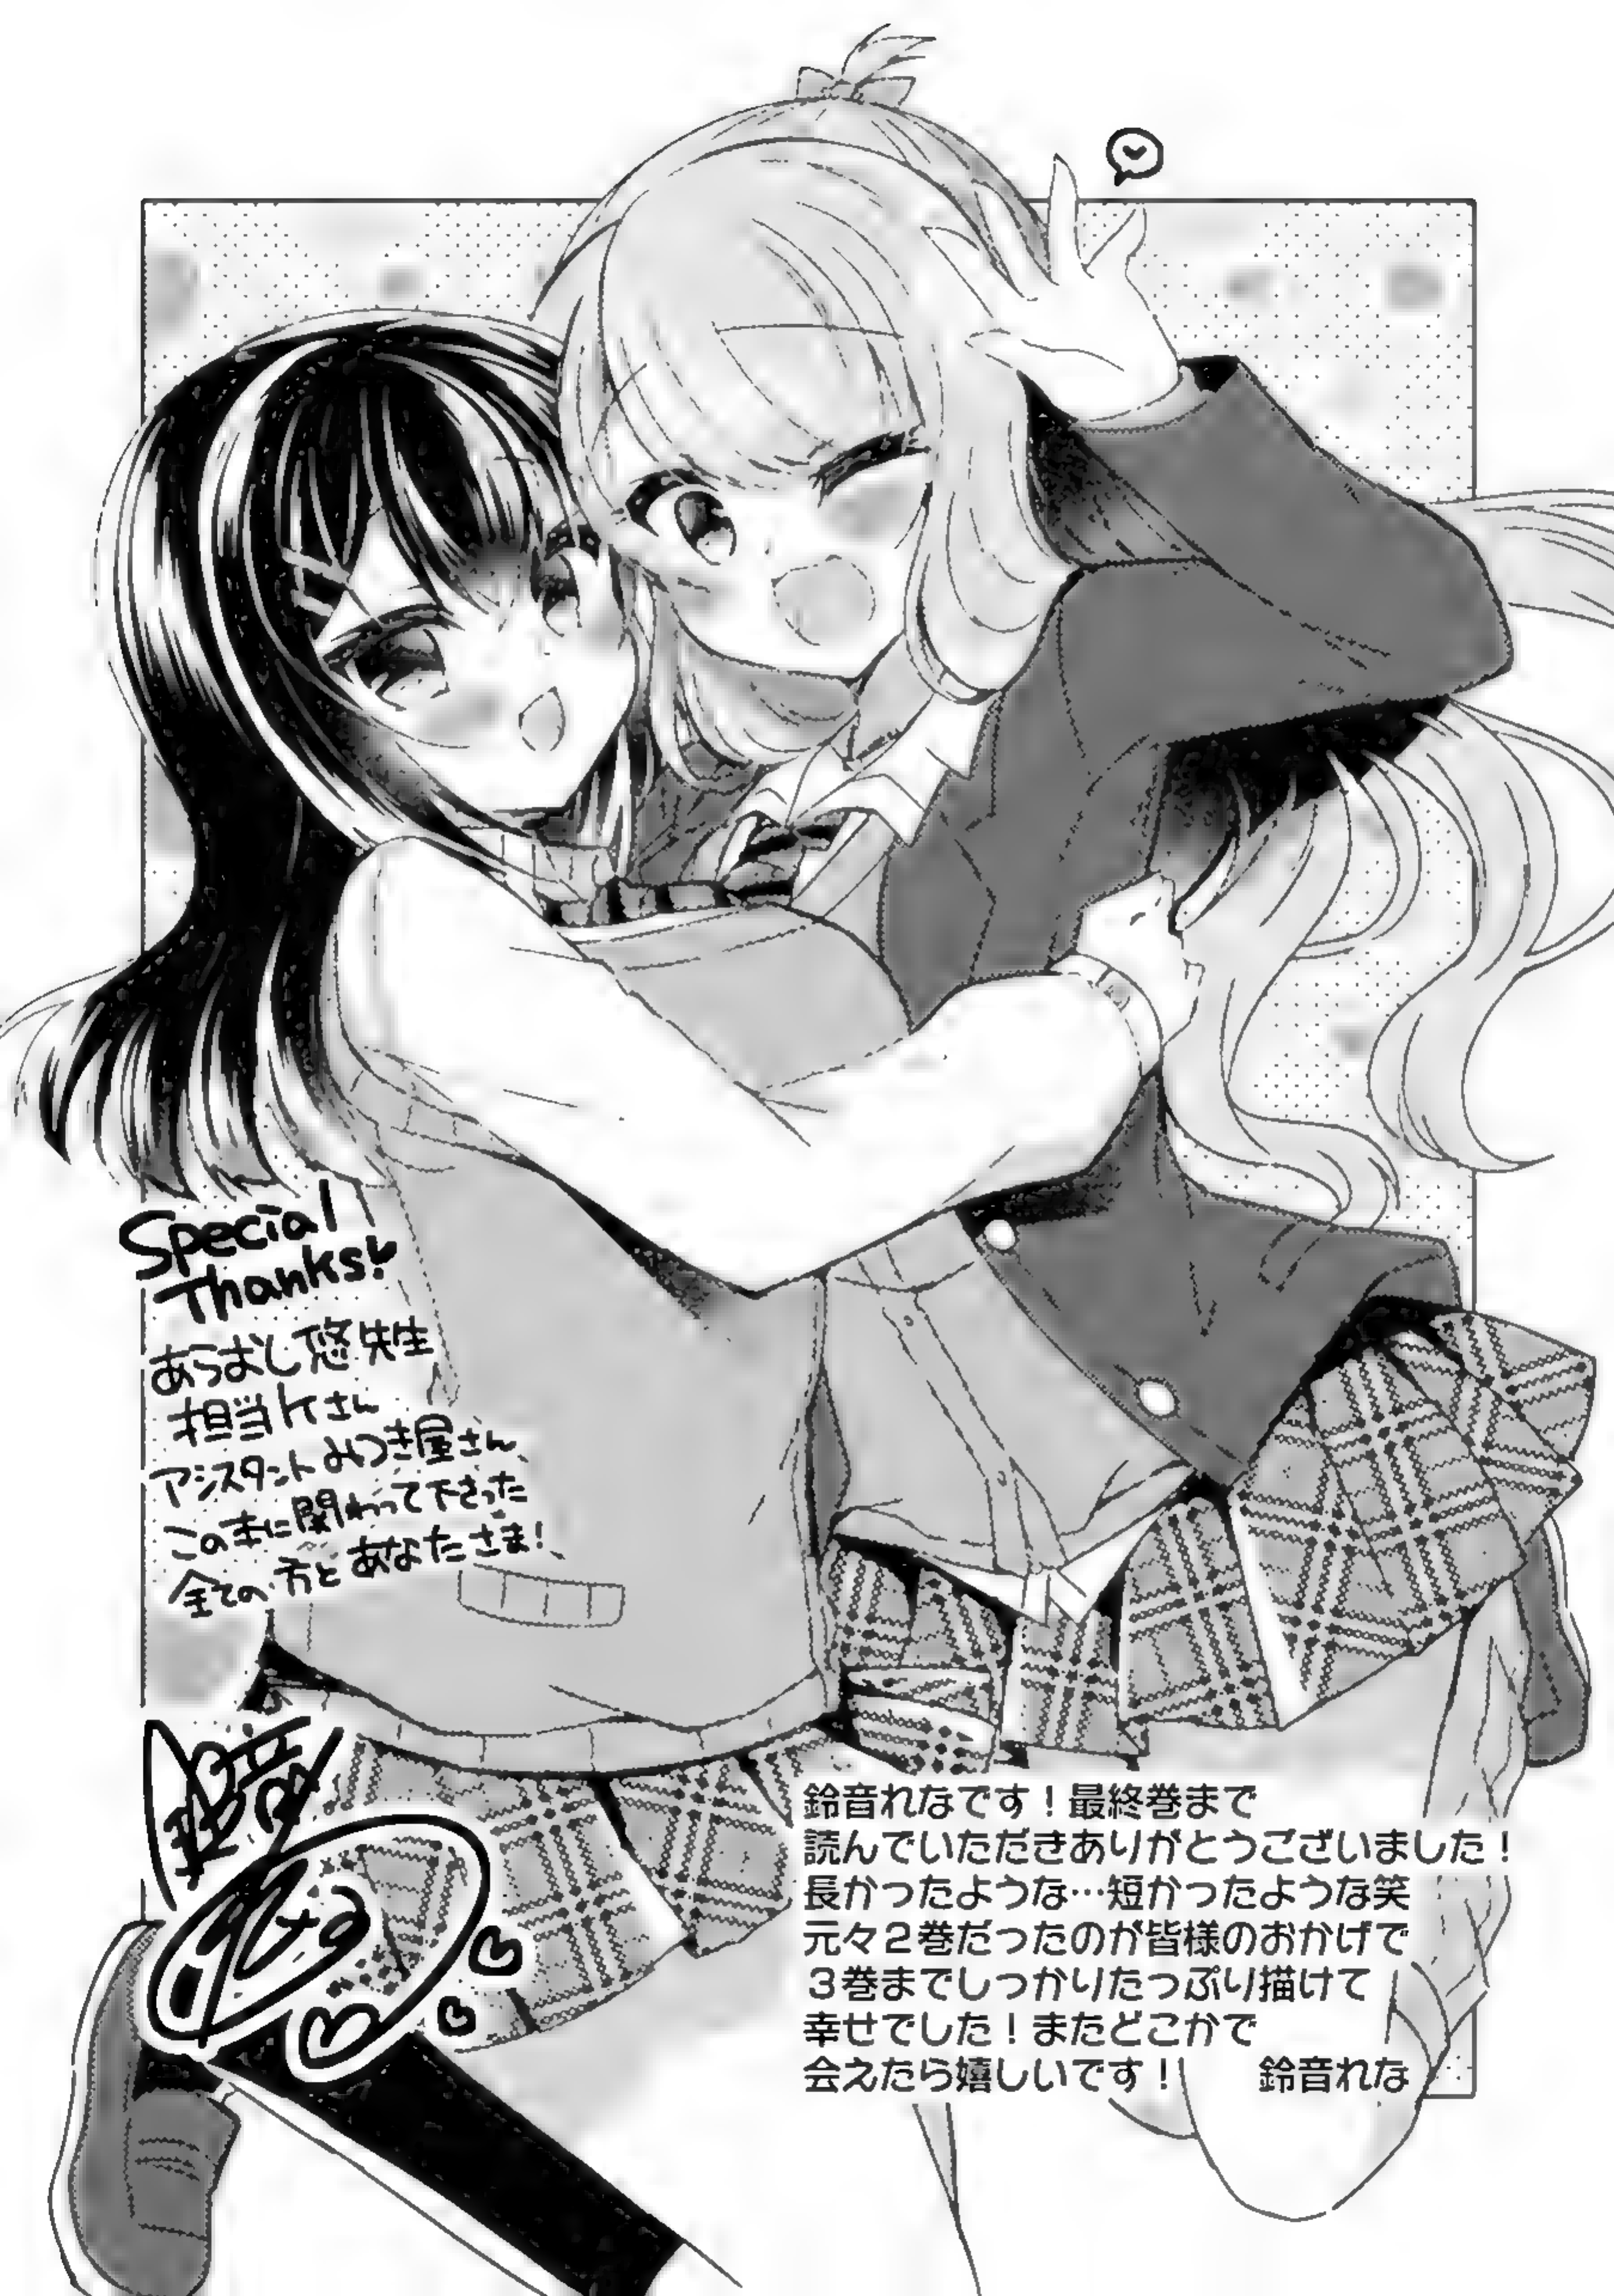 Special
Thanks!
あらおし悠先生
担当Kさん
アシスタントみつき屋さん
この本に関わって下さった
全ての方とあなたさま!
鈴音
れな
鈴音れなです！最終巻まで
読んでいただきありがとうございました！
長かったような…短かったような笑
元々２巻だったのが皆様のおかげで
３巻までしっかりたっぷり描けて
幸せでした！またどこかで
会えたら嬉しいです！　　鈴音れな